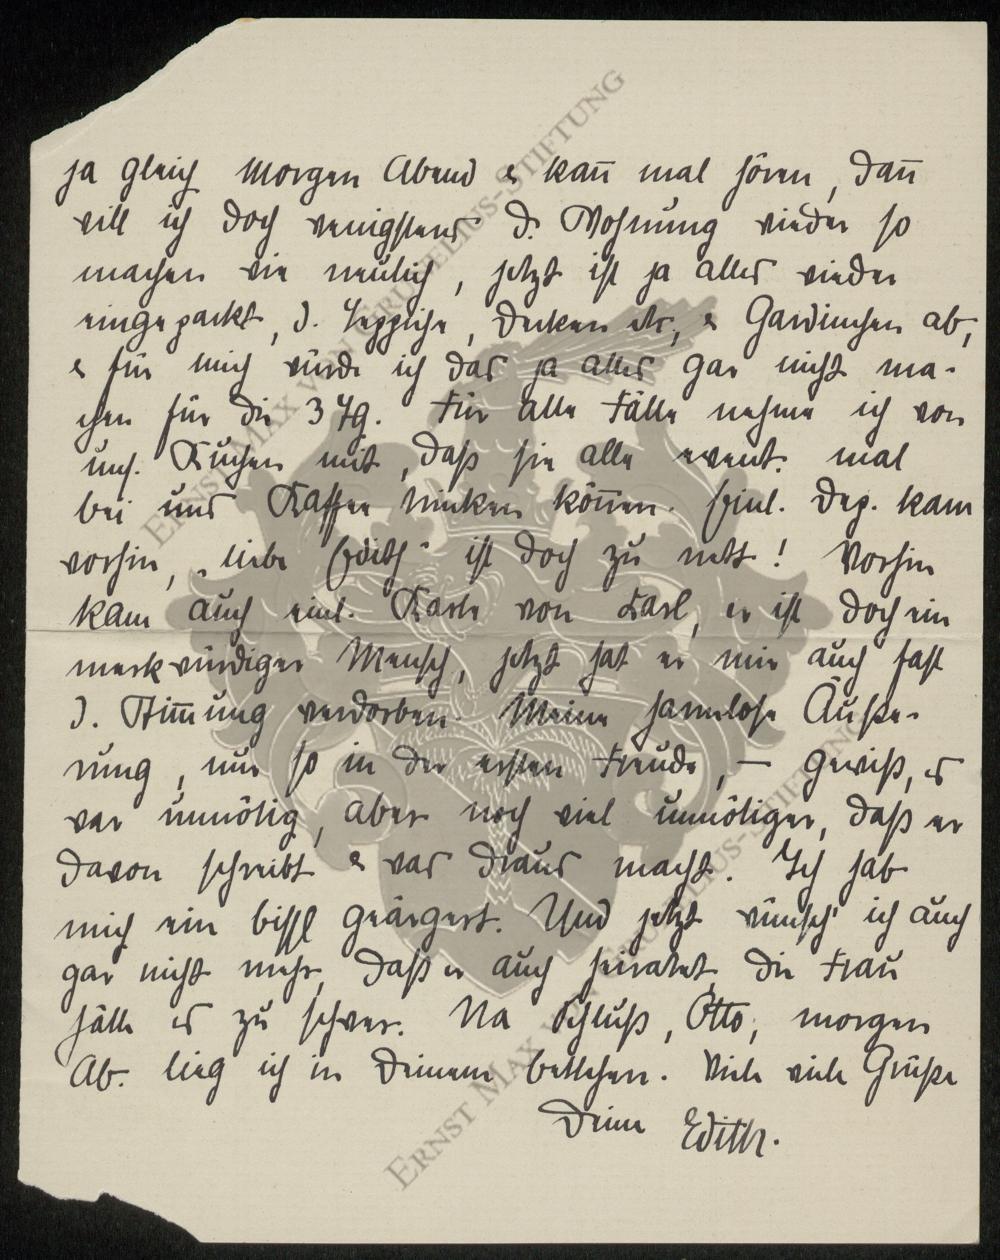 ja gleich morgen Abend & kann mal hören, dann
will ich doch wenigstens d. Wohnung wieder so
machen wie neulich, jetzt ist ja alles wieder
eingepackt, d. Teppiche, Decken etc, & Gardinchen ab,
& für mich würde ich das ja alles gar nicht ma-
chen für die 3 Tg. Für alle Fälle nehme ich von
uns. Kuchen mit, daß sie alle event. mal
bei uns Kaffee trinken können. Dep. kam
vorhin, „liebe Edith" ist doch zu nett! Vorhin
kam auch eine Karte von Karl, er ist doch ein
merkwürdiger Mensch, jetzt hat er mir auch fast
d. Stimmung verdorben. Meine harmlose Äuße-
rung, nur so in der ersten Freude, — gewiß, es
war unnötig, aber noch viel unnötiger, daß er
davon schreibt & was draus macht. Ich hab
mich ein bissl geärgert. Und jetzt wünsch' ich auch
gar nicht mehr, daß er auch heiratet, die Frau
hätte es zu schwer. Na Schluß, Otto, morgen
Ab. lieg ich in Deinem Bettchen. Viele viele Grüße
Deine Edith.
ERNST MAX VON GRUNELIUS-STIFTUNG
ERNST MAX VON GRUNELIUS-STIFTUNG